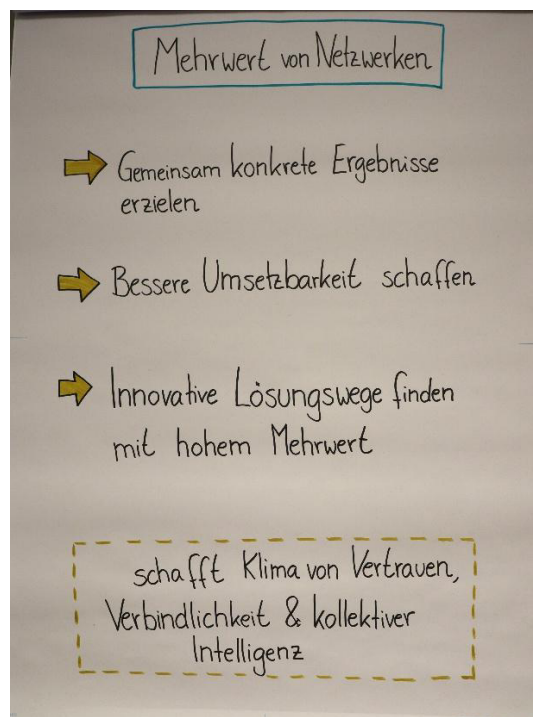 Mehrwert von Netzwerken
Gemeinsam konkrete Ergebnisse
erzielen
Bessere Umsetzbarkeit schaffen
Innovative Lösungswege finden
mit hohem Mehrwert
schafft Klima von Vertrauen,
Verbindlichkeit & kollektiver
Intelligenz